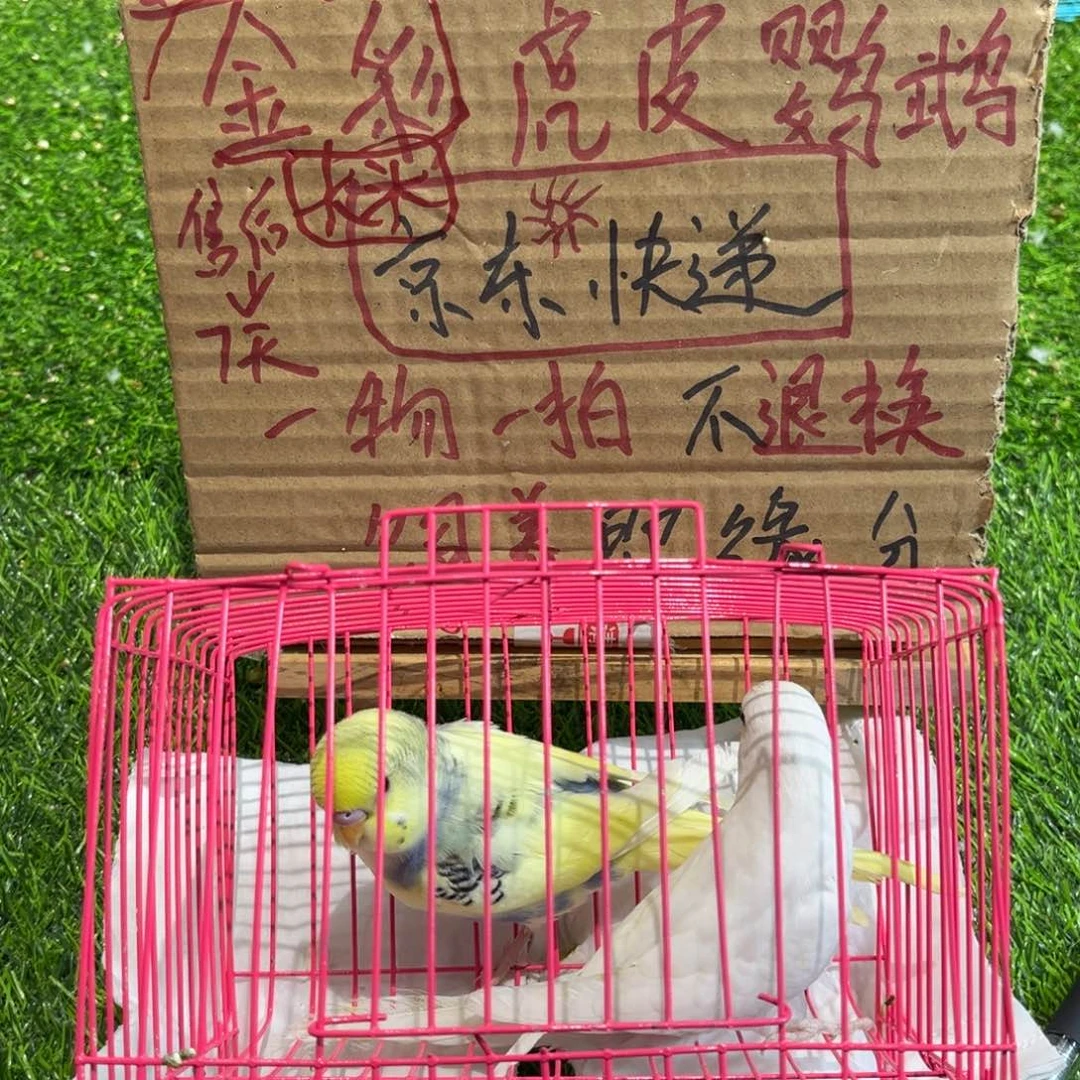 金彩虎皮鹦鹉
售后
京东快递
天
一物一拍 不退换
缘分